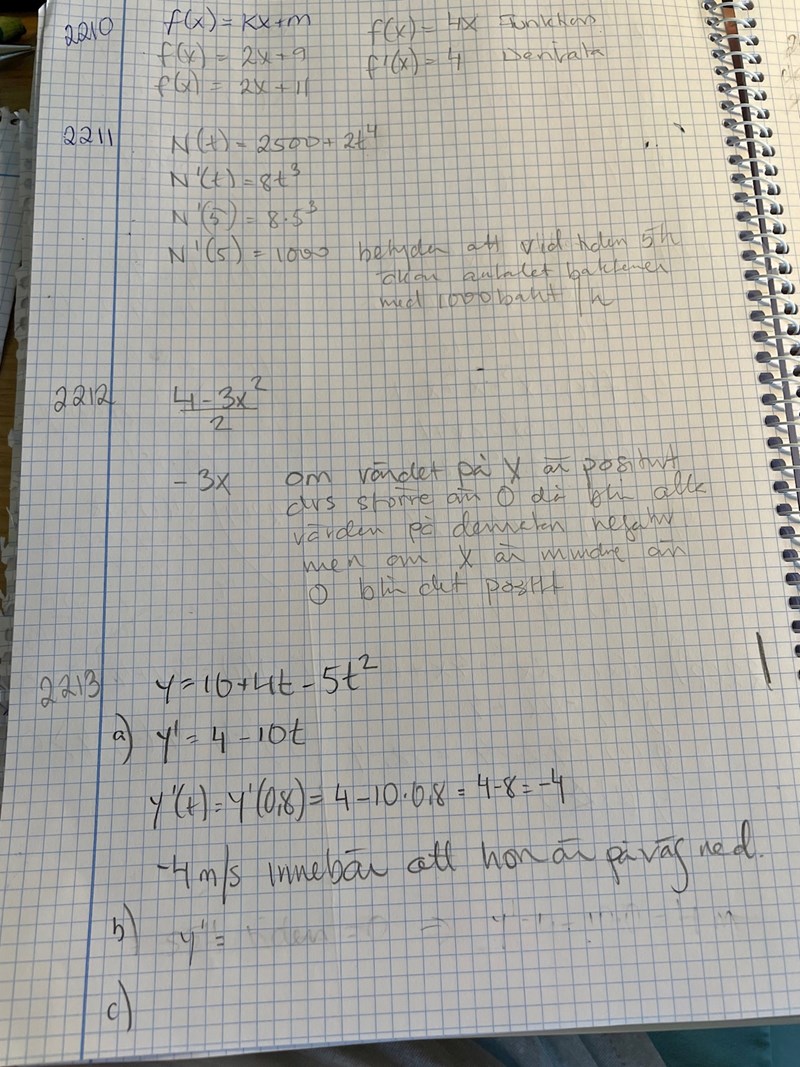 2210 f(x) = kx+m f(x) = 4x Funktion
f(x) = 2x+9 f'(x) = 4 Derivata
f(x) = 2x + 11
2211 N(t) = 2500 + 2t⁴
N'(t) = 8t³
N'(5) = 8·5³
N'(5) = 1000 betyder att vid tiden 5h
ökar antalet bakterier
med 1000 bakt/h
2212 (4-3x²)/2
-3x om värdet på x är positivt
dvs större än 0 då blir alla
värden på derivatan negativ
men om x är mindre än
0 blir det positivt
2213 y = 10+4t-5t²
a) y' = 4 - 10t
y'(t) = y'(0,8) = 4-10·0,8 = 4-8 = -4
-4 m/s innebär att hon är på väg ned.
b) y' =
c)